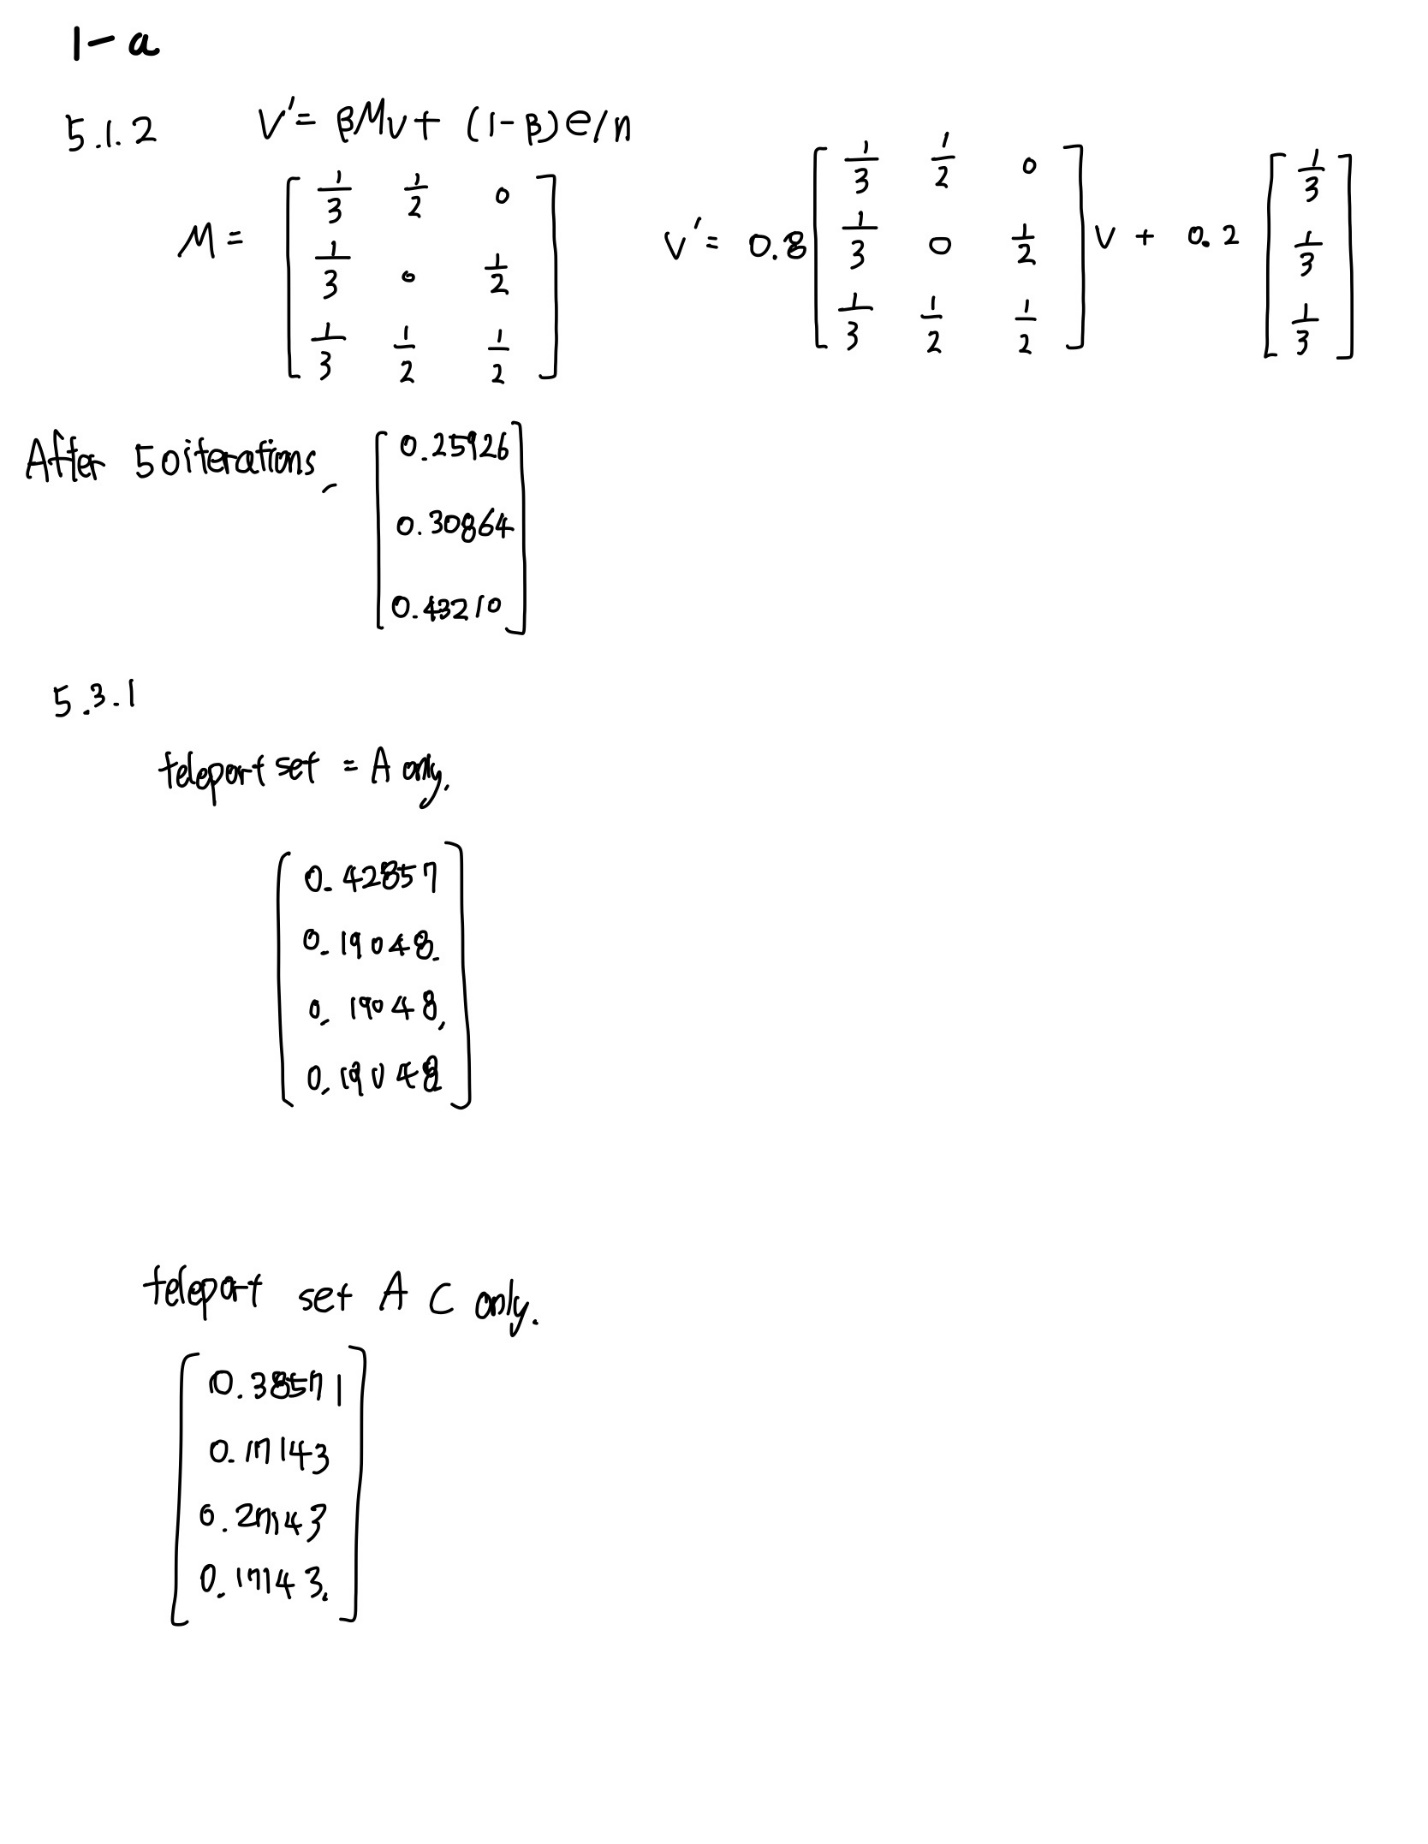 1-a
5.1.2 V'= βMv + (1-β)e/n
M = [ 1/3 1/2 0 V'= 0.8 [ 1/3 1/2 0 ] V + 0.2 [ 1/3
1/3 0 1/2 1/3 0 1/2 1/3
1/3 1/2 1/2 ] 1/3 1/2 1/2 1/3 ]
After 50iterations, [ 0.25926
0.30864
0.43210 ]
5.3.1
teleport set = A only.
[ 0.42857
0.19048.
0.19048,
0.19048 ]
teleport set A C only.
[ 0.38571
0.17143
0.27143
0.17143. ]